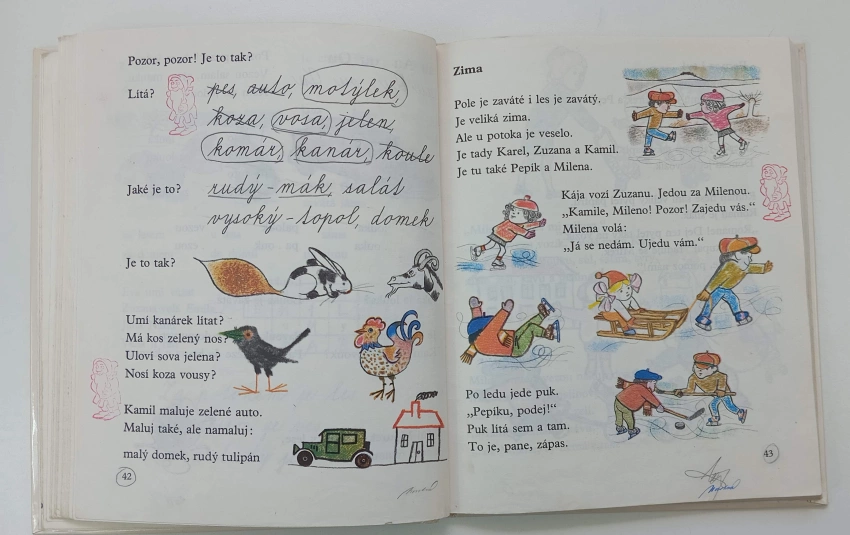 Pozor, pozor! Je to tak?
Lítá? pes, auto, motýlek,
koza, vosa, jelen,
komár, kanár, koule
Jaké je to? rudý - mák, salát
vysoký - topol, domek
Je to tak?
Umí kanárek lítat?
Má kos zelený nos?
Uloví sova jelena?
Nosí koza vousy?
Kamil maluje zelené auto.
Maluj také, ale namaluj:
malý domek, rudý tulipán
42
Zima
Pole je zaváté i les je zavátý.
Je veliká zima.
Ale u potoka je veselo.
Je tady Karel, Zuzana a Kamil.
Je tu také Pepík a Milena.
Kája vozí Zuzanu. Jedou za Milenou.
„Kamile, Mileno! Pozor! Zajedu vás.“
Milena volá:
„Já se nedám. Ujedu vám.“
Po ledu jede puk.
„Pepíku, podej!“
Puk lítá sem a tam.
To je, pane, zápas.
43